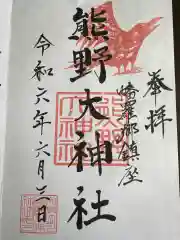 奉拝
幡羅郡鎮座
熊野大神社
令和六年六月三日